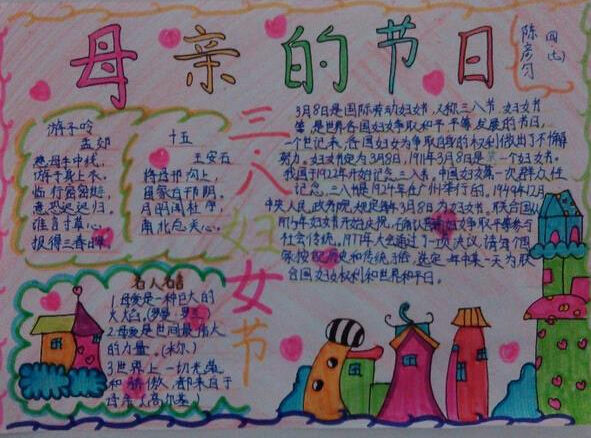 母亲的节日
三八妇女节
游子吟
孟郊
慈母手中线,
游子身上衣。
临行密密缝,
意恐迟迟归。
谁言寸草心,
报得三春晖。
十五
王安石
将母邗沟上,
留家白邗阴。
月明闻杜宇,
南北总关心。
名人名言
1.母爱是一种巨大的
火焰。(罗曼·罗兰)
2.母爱是世间最伟大
的力量。(米尔)
3.世界上一切光荣
和骄傲,都来自于
母亲(高尔基)
3月8日是国际劳动妇女节,又称三八节、妇女节
等,是世界各国妇女争取和平、平等、发展的节日。
一个世纪来,各国妇女为争取自身的权利做出了不懈
努力。妇女节定为3月8日,1911年3月8日是第一个妇女节。
我国于1922年开始纪念三八节。中国妇女第一次群力
纪念三八节是1924年在广州举行的。1949年12月
中央人民政务院规定每年3月8日为妇女节。联合国从
1975年妇女节开始庆祝,
社会传统,1977年大会通过了一项决议,请每个国
家按照历史和传统习俗,选定一年中某一天为联
合国妇女权利和世界和平日。